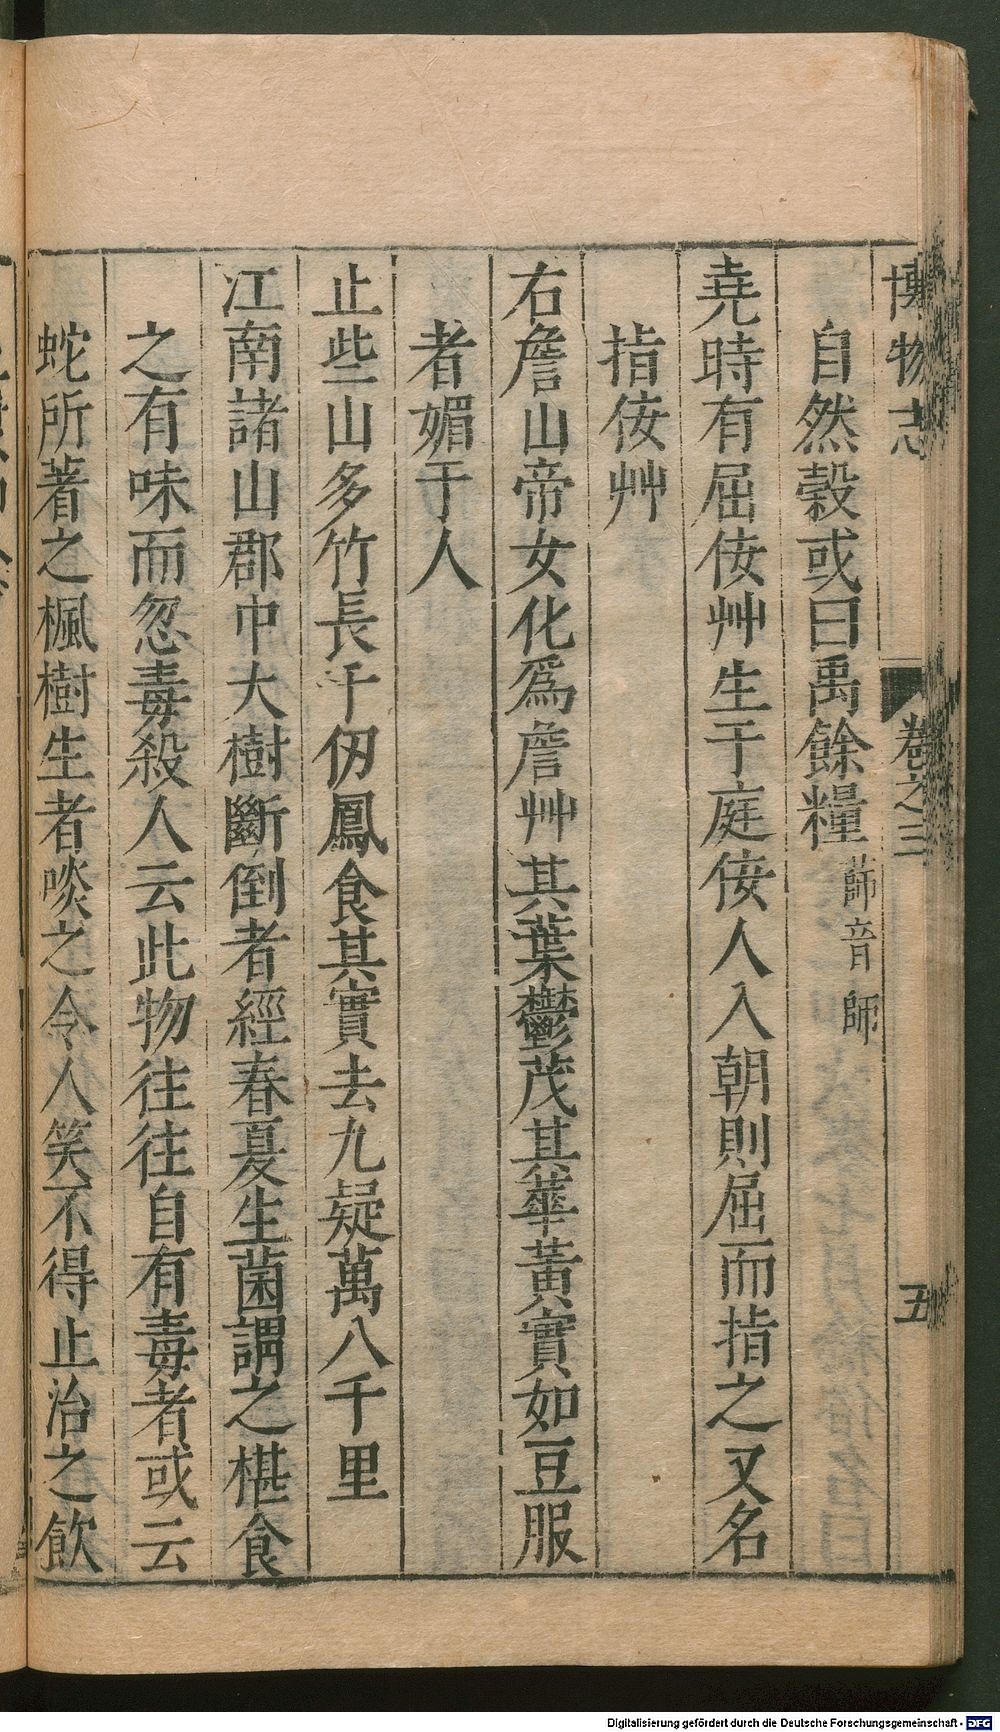 博物志 卷之三 五
自然穀或曰禹餘糧 蒒音師
堯時有屈佞艸生于庭佞人入朝則屈而指之又名
指佞艸
右詹山帝女化爲詹艸其葉鬱茂其蕐黃實如豆服
者媚于人
止些山多竹長千仞鳳食其實去九疑萬八千里
江南諸山郡中大樹斷倒者經春夏生菌謂之椹食
之有味而忽毒殺人云此物往往自有毒者或云
蛇所著之楓樹生者啖之令人笑不得止治之飮
Digitalisierung gefördert durch die Deutsche Forschungsgemeinschaft - DFG